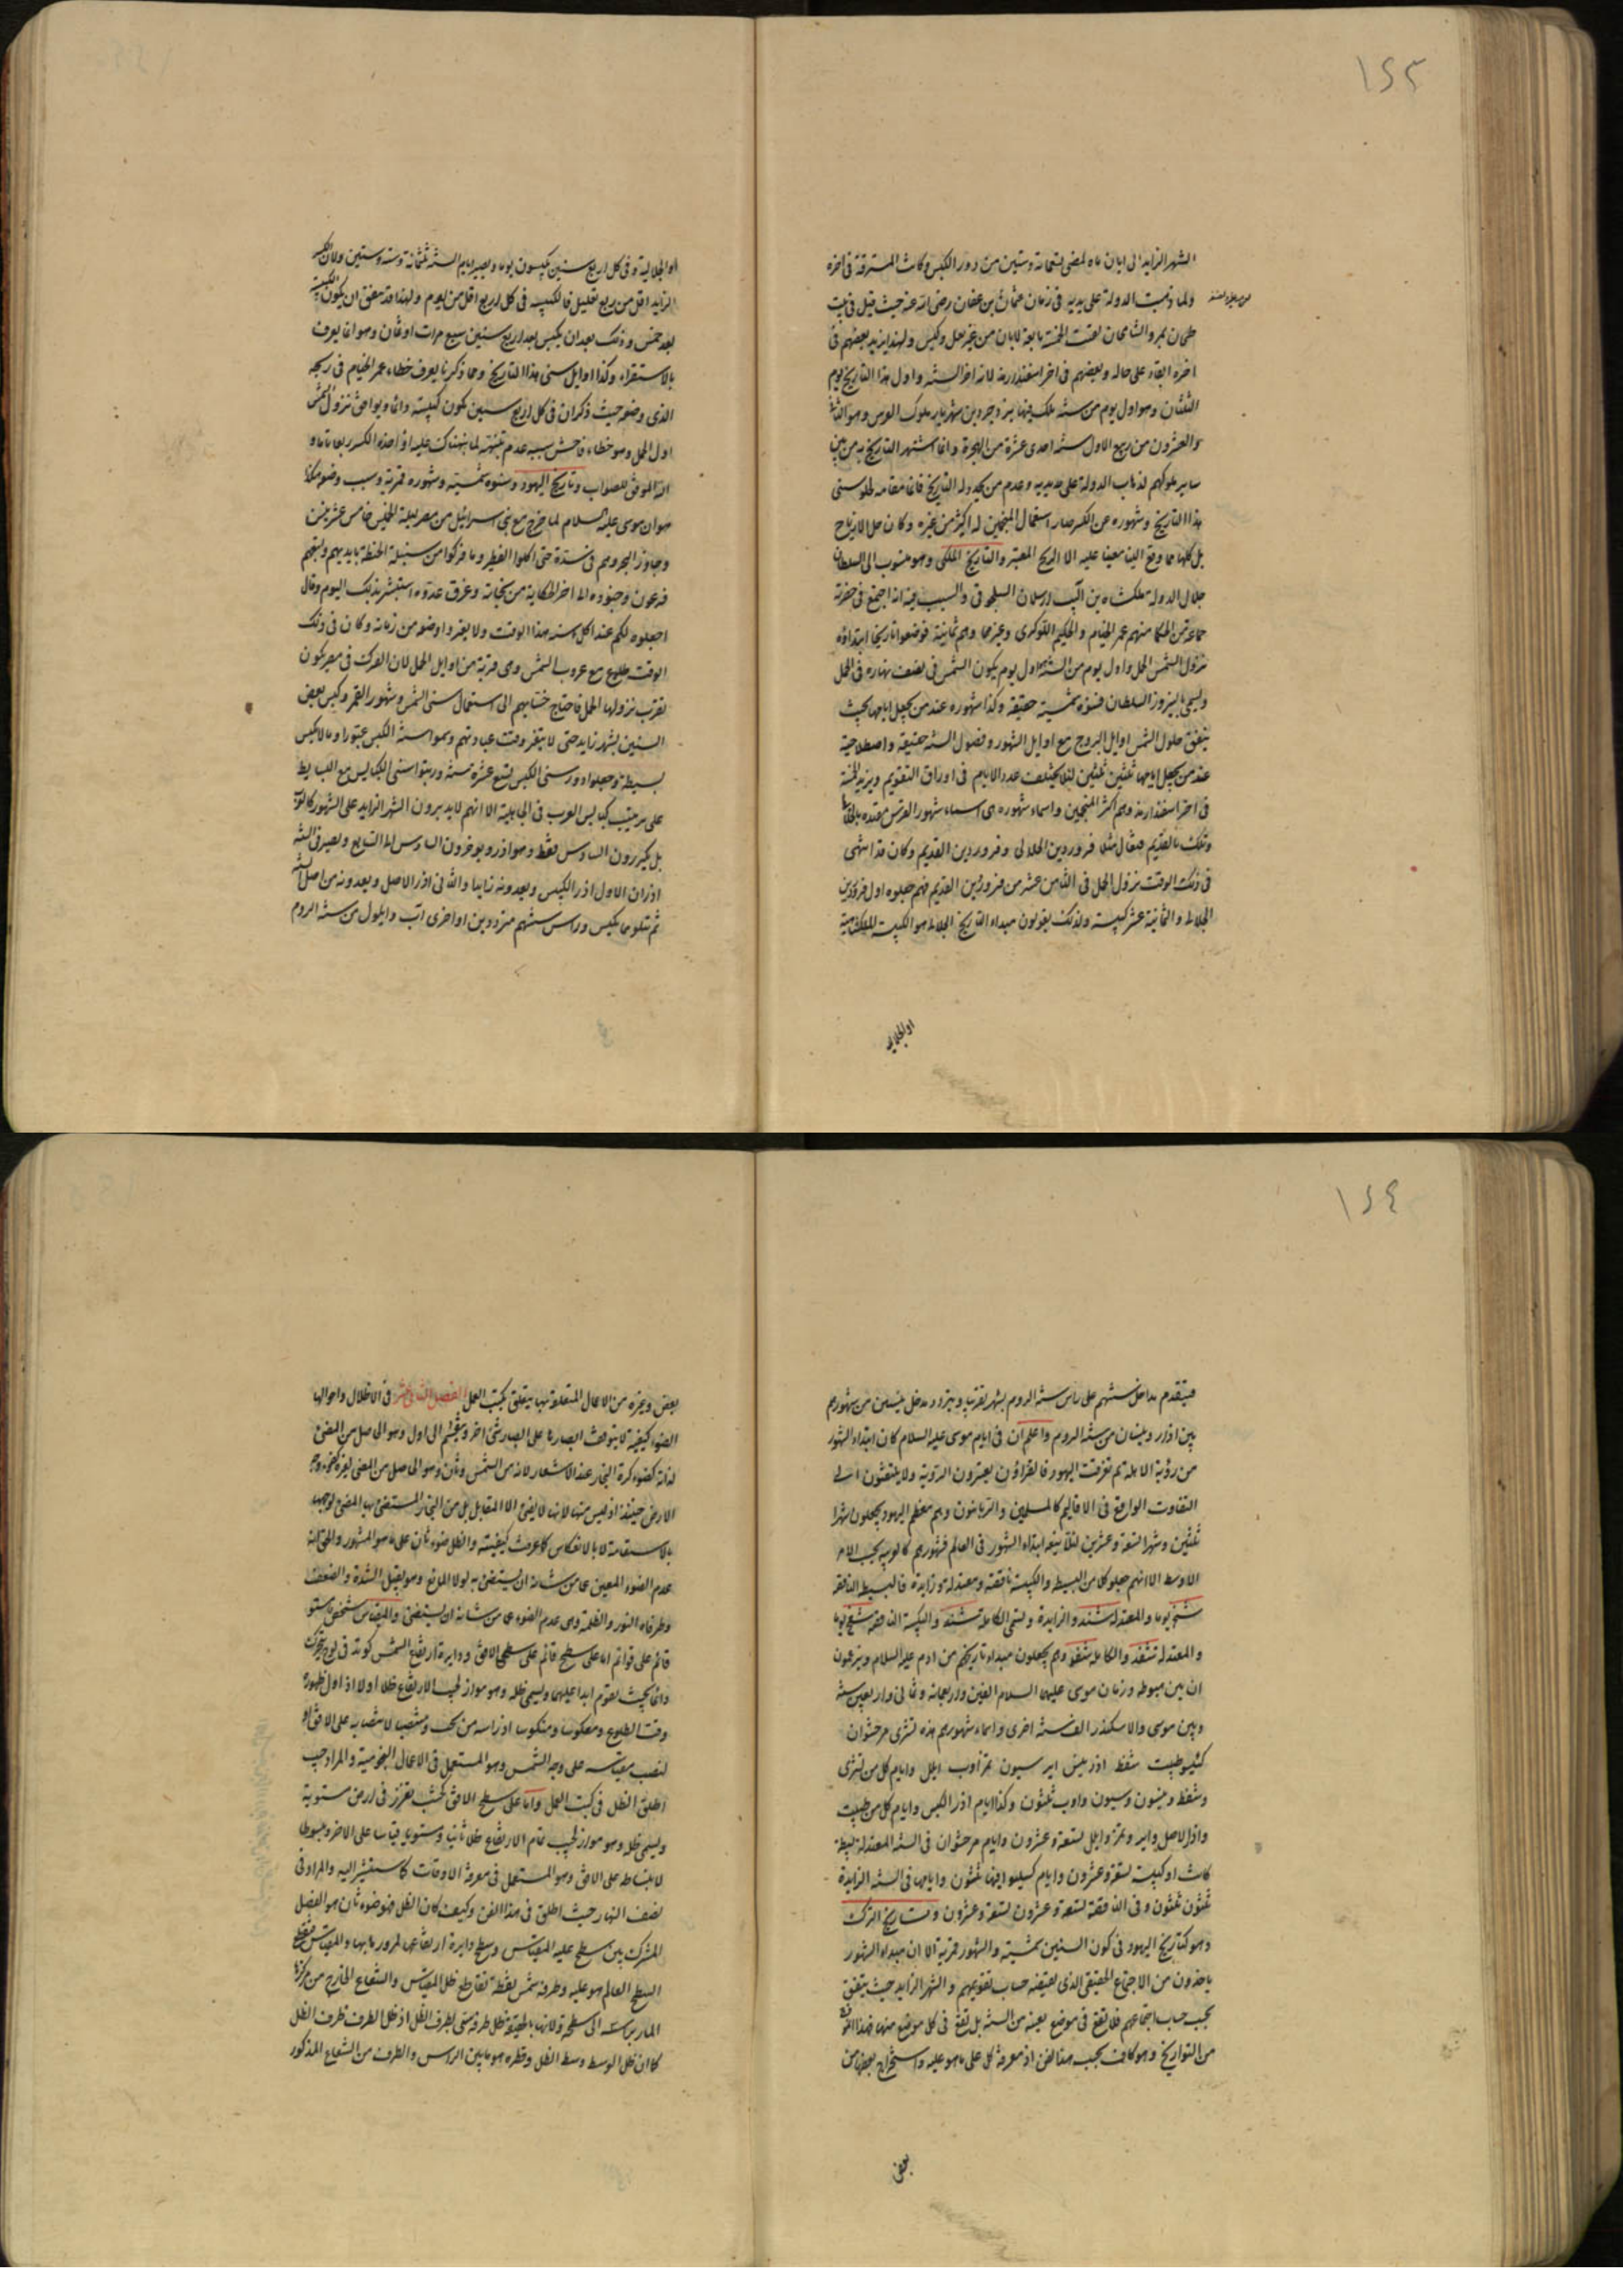 ١٤٣
الشهر الزايد الى ابان ماه لمضى تسعمائة وستين من دور الكبس وكانت المسترقة فى اخره
ولما ذهبت الدولة على يديه فى زمان عثمان بن عفان رضى الله عنه حيث قتل فى بيت
طحان بمرو الشاهجان بقيت الخمسة تابعة لابان من غير عمل وكبس ولهذا يزيد بعضهم فى
اخره ابقاء على حاله وبعضهم فى اخر اسفندارمذ لانه اخر السنة واول هذا التاريخ يوم
الثلثاء وهو اول يوم من سنة ملك فيها يزدجرد بن شهريار ملوك الفرس وهو الثانى
والعشرون من ربيع الاول سنة احدى عشرة من الهجرة وانما اشتهر التاريخ به من بين
ساير ملوكهم لذهاب الدولة على يديه وعدم من يجدد له التاريخ قائما مقامه ولخلو سنى
هذا التاريخ وشهوره عن الكسر صار استعمال المنجمين له اكثر من غيره وكان حل الازياج
بل كلها مما وقع الينا مبنيا عليه الا الزيج المعتبر والتاريخ الملكى وهو منسوب الى السلطان
جلال الدولة ملكشاه بن الب ارسلان السلجوقى والسبب فيه انه اجتمع فى حضرته
جماعة من الحكما منهم عمر الخيام والحكيم اللوكرى وغيرهما وهم ثمانية فوضعوا تاريخا ابتداؤه
نزول الشمس الحمل واول يوم من السنة اول يوم يكون الشمس فى نصف نهاره فى الحمل
ويسمى بنيروز السلطان فسنوه شمسية حقيقة وكذا شهوره عند من يجعل ايامها بحيث
يتفق حلول الشمس اوايل البروج مع اوايل الشهور وفصول السنة حقيقة واصطلاحية
عند من يجعل ايامها ثلثين ثلثين لئلا يختلف عدد الايام فى اوراق التقويم ويزيد الخمسة
فى اخر اسفندارمذ وهم اكثر المنجمين واسماء شهوره هى اسماء شهور الفرس مقيدة بالجلالى
وتلك بالقديم فيقال مثلا فروردين الجلالى وفروردين القديم وكان قد انتهى
فى ذلك الوقت نزول الحمل فى الثامن عشر من فروردين القديم فهم جعلوه اول فروردين
الجلالى والثمانية عشر كبيسة ولذلك يقولون مبداء التاريخ الجلالى هو الكبيسة الملكشاهية
او الجلالية
او الجلالية وفى كل اربع سنين يكبسون يوما ويصير ايام السنة ثلثمائة وستة وستين ولان الكسر
الزايد اقل من ربع بقليل فالكبيسة فى كل اربع اقل من يوم ولهذا قد يتفق ان يكون الكبيسة
بعد خمس وذلك بعد ان يكبس بعد اربع سنين سبع مرات او ثمان وهو انما يعرف
بالاستقراء وكذا اوايل سنى هذا التاريخ ومما ذكرنا يعرف خطاء عمر الخيام فى زيجه
الذى وضعه حيث ذكر ان فى كل اربع سنين يكون كبيسة دائما ويوافق نزول الشمس
اول الحمل وهو خطاء فاحش سببه عدم تنبهه لما نبهناك عليه او اخذه الكسر ربعا تاما و
الله الموفق للصواب وتاريخ اليهود وسنوه شمسية وشهوره قمرية وسبب وضعه هكذا
هو ان موسى عليه السلام لما خرج مع بنى اسرائيل من مصر ليلة الخميس خامس عشر نيسن
وجاوز البحر وهم فى شدة حتى اكلوا الفطير وما فركوا من سنبلة الحنطة بايديهم وتبعهم
فرعون وجنوده الى اخر الحكاية من نجاته وغرق عدوه استبشر بذلك اليوم وقال
اجعلوه لكم عند اكل سنة هذا الوقت ولا يغيروا وضعه من زمانه وكان فى ذلك
الوقت طلوع مع غروب الشمس وهى قريبة من اوايل الحمل لان الفرك فى مصر يكون
بقرب نزولها الحمل فاحتاج حسابهم الى استعمال سنى الشمس وشهور القمر وكبس بعض
السنين بشهر زايد حتى لا يتغير وقت عبادتهم وسموا سنة الكبس عبورا وما لا يكبس
بسيطة وجعلوا دور سنى الكبس تسع عشرة سنة ورتبوا سنى الكبايس مع البسايط
على ترتيب كبايس العرب فى الجاهلية الا انهم لا يديرون الشهر الزايد على الشهور كالعرب
بل يكررون السادس فقط وهو اذر ويؤخرون السادس الى السابع ويصير فى السنة
اذران الاول اذر الكبس ويعدونه زايدا والثانى اذر الاصل ويعدونه من اصل السنة
ثم تتلوهما يكبس وراس سنتهم متردد بين اواخرى اب وايلول من سنة الروم
١٤٤
فيتقدم مداخل سنتهم على راس سنة الروم بشهر تقريبا ويتردد مدخل نيسن من شهورهم
بين اذار ونيسان من سنة الروم واعلم ان فى ايام موسى عليه السلام كان ابتداء الشهور
من رؤية الاهلة ثم تفرقت اليهود فالقراؤن يعتبرون الرؤية ولا يلتفتون الى
التفاوت الواقع فى الاقاليم كالمسلمين والربانيون وهم معظم اليهود يجعلون شهرا
ثلثين وشهرا تسعة وعشرين لئلا يتغير ابتداء الشهور فى العالم فشهورهم كالعربية بحسب الامر
الاوسط الا انهم جعلوا كلا من البسيطة والكبيسة ناقصة ومعتدلة وزايدة فالبسيطة الناقصة
شنج يوما والمعتدلة شند والزايدة وتسمى الكاملة شنه والكبيسة الناقصة شفج يوما
والمعتدلة شفد والكاملة شفه وهم يجعلون مبداء تاريخهم من ادم عليه السلام ويزعمون
ان بين هبوطه وزمان موسى عليهما السلام الفين واربعمائة وثمانى واربعين سنة
وبين موسى والاسكندر الف سنة اخرى واسماء شهورهم هذه تشرى مرحشوان
كسليو طيبث شفط اذر نيسن اير سيون تمز اوب ايلل وايام كل من تشرى
وشفط ونيسون وسيون واوب ثلثون وكذا ايام اذر الكبس وايام كل من طيبث
واذر الاصل واير وتمز وايلل تسعة وعشرون وايام مرحشوان فى السنة المعتدلة بسيطة
كانت او كبيسة تسعة وعشرون وايام كسليو ايضا ثلثون وايامها فى السنة الزايدة
ثلثون ثلثون وفى الناقصة تسعة وعشرون تسعة وعشرون وتاريخ الترك
وهو كتاريخ اليهود فى كون السنين شمسية والشهور قمرية الا ان مبداء الشهور
ياخذون من الاجتماع الحقيقى الذى يقتضيه حساب تقويمهم والشهر الزايد حيث يتفق
بحسب حساب اجتماعهم فلا يقع فى موضع بعينه من السنة بل يقع فى كل موضع منها فهذا القدر
من التواريخ وهو كاف بحسب هذا الفن اذ معرفة كل على ما هو عليه واستخراج بعضها من
بعض
بعض وغيره من الاعمال المتعلقة بها يتعلق بكتب العمل الفصل الثانى عشر فى الاظلال واحوالها
الضوء كيفية لا يتوقف ابصارها على ابصار شئ اخر وينقسم الى اول وهو الحاصل من المضئ
لذاته كضوء كرة البخار عند الاسفار لانه من الشمس وثان وهو الحاصل من المضئ لغيره كضوء وجه
الارض حينئذ اذ ليس منها لانها لا يضئ الا المقابل بل من البخار المستضئ بها المضئ لوجهها
بالاستقامة لا بالانعكاس كما عرفت كيفيته والظل ضوء ثان على ما هو المشهور والحق انه
عدم الضوء المعين عما من شانه ان يستضئ به لولا المانع وهو يقبل الشدة والضعف
وطرفاه النور والظلمة وهى عدم الضوء عما من شانه ان يستضئ والمقياس شخص مستو
قائم على قوائم اما على سطح قائم على سطحى الافق ودايرة ارتفاع الشمس كوتد فى لوح يتحرك
دائما بحيث يقوم ابدا عليهما ويسمى ظله وهو مواز لجيب الارتفاع ظلا اولا اذ اول ظهوره
وقت الطلوع ومعكوسا ومنكوسا اذ راسه من تحت ومنتصبا لانتصابه على الافق او
لنصب مقياسه على وجه الشمس وهو المستعمل فى الاعمال النجومية والمراد حيث
اطلق الظل فى كتب العمل واما على سطح الافق كخشب يغرز فى ارض مستوية
ويسمى ظله وهو مواز لجيب تمام الارتفاع ظلا ثانيا ومستويا قياسا على الاخر ومبسوطا
لانبساطه على الافق وهو المستعمل فى معرفة الاوقات كما سنشير اليه والمراد فى
نصف النهار حيث اطلق فى هذا الفن وكيف كان الظل فهو ضوء ثان هو الفصل
المشترك بين سطح عليه المقياس وسطح دايرة ارتفاعها لمرورها بها والمقياس يقطع
السطح القائم هو عليه وطرفه شمس نقطة تقاطع ظل المقياس والشعاع الخارج من مركزها
المار براسه الى سطحه ولانها بالحقيقة ظل طرفه سمى بطرف الظل اذ ظل الطرف طرف الظل
كما ان ظل الوسط وسط الظل وقطره هو ما بين الراس والطرف من الشعاع المذكور